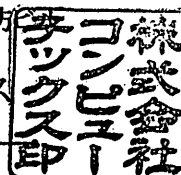 株式會社
コンピュー
テックス印